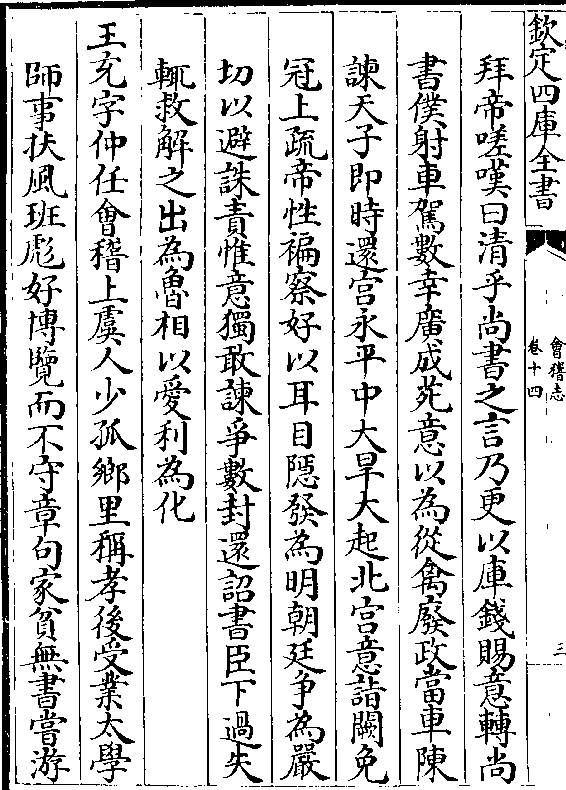 欽定四庫全書
會稽志
卷十四
三
拜帝嗟嘆曰清乎尚書之言乃更以庫錢賜意轉尚
書僕射車駕數幸廣成苑意以為從禽廢政當車陳
諫天子即時還宫永平中大旱大起北宫意詣闕免
冠上疏帝性褊察好以耳目隱發為明朝廷争為嚴
切以避誅責惟意獨敢諫爭數封還詔書臣下過失
輒救解之出為魯相以愛利為化
王充字仲任會稽上虞人少孤鄉里稱孝後受業太學
師事扶風班彪好博覽而不守章句家貧無書嘗游